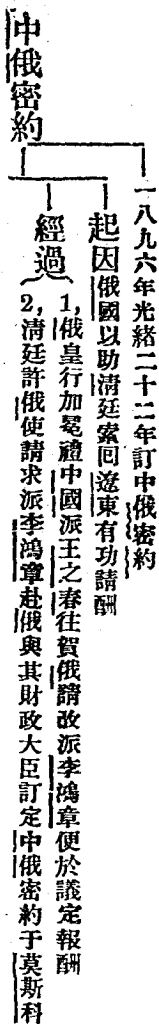 中俄密約
一八九六年光緒二十二年訂中俄密約
起因俄國以助淸廷索回遼東有功請酬
經過
1,俄皇行加冕禮中國派王之春往賀俄請改派李鴻章便於議定報酬
2,淸廷許俄使請求派李鴻章赴俄與其財政大臣訂定中俄密約于莫斯科